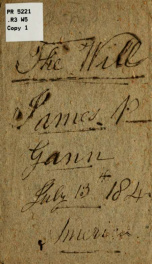 PR 5221
.R3 W5
Copy 1
The Will
James
Gann
July 13th 184